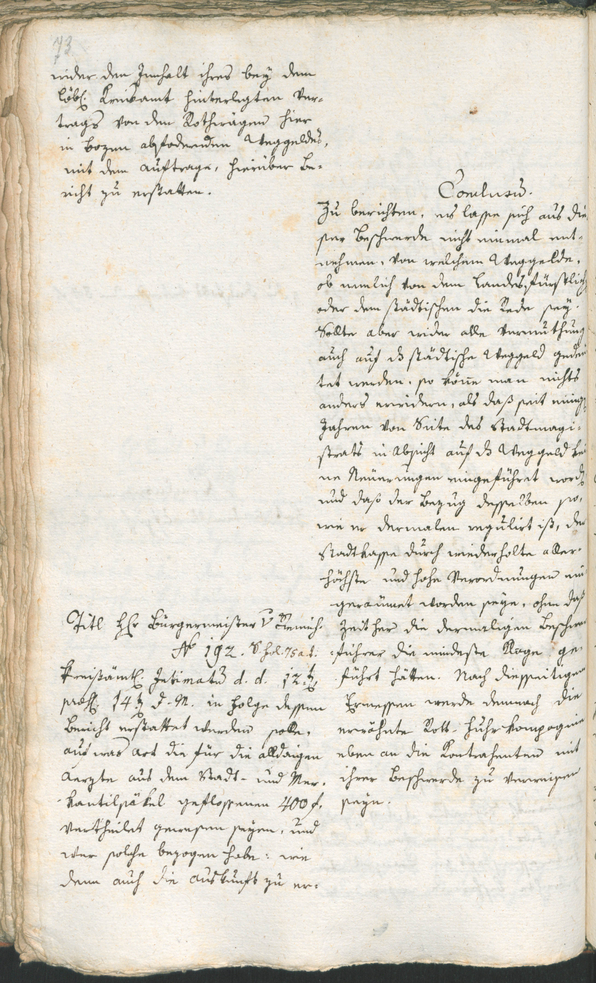 73
wider den Innhalt ihres bey dem
löbl. Kreisamt hinterlegten Ver-
trags von den Rothwägen hier
in Bozen abfodernden Weggeldes,
mit dem Auftrage, hierüber Be-
richt zu erstatten.
Conclusum.
Zu berichten, es lasse sich aus die
ser Beschwerde nicht einmal ent-
nehmen, von welchem Weggelde,
ob nemlich von dem Landesfürstlich
oder dem städtischen die Rede sey.
Sollte aber wider alle Vermuthung
auch auf das städtische Weggeld gedeu
tet werden, so könne man nichts
anders erwidern, als daß seit einig
Jahren von Seite des Stadtmagi-
strats in Absicht auf das Weggeld kei
ne Neuerungen eingeführt word
und daß der Bezug desselben so,
wie er dermalen regulirt ist, der
Stadtkasse durch wiederholte aller-
höchste und hohe Verordnungen ein
geraumet worden seye, ohne daß
Zeit her die dermaligen Beschwer
führer die mindeste Klage ge
führt hätten. Nach diesseitigen
Ermessen werde demnach die
erwähnte Rott-Fuhr-Kompagnie
eben an die Kontrahenten mit
ihrer Beschwerde zu verweisen
seye.
Titl Hr Bürgermeister v.
No 192.
Kreisämtl. Intimatum d. d. 12
praes. 14 d. M. in Folge dessen
Bericht erstattet werden solle,
auf was Art die für die alldaigen
Aerzte aus dem Stadt- und Mer-
kantilsäkel geflossenen 400 f.
vertheilet gewesen seyen, und
wer solche bezogen habe: wie
dann auch die Auskunft zu er-